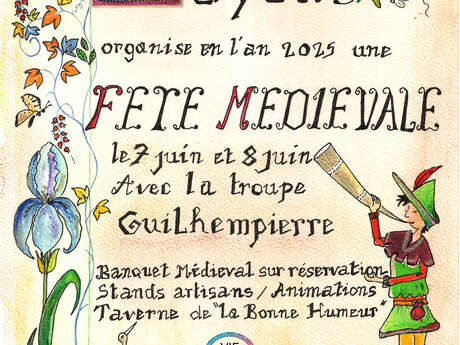 organise en l'an 2025 une
FETE MEDIEVALE
le 7 juin et 8 juin
Avec la troupe
Guilhempierre
Banquet Médieval sur réservation
Stands artisans / Animations
Taverne de "la Bonne Humeur"
VIF